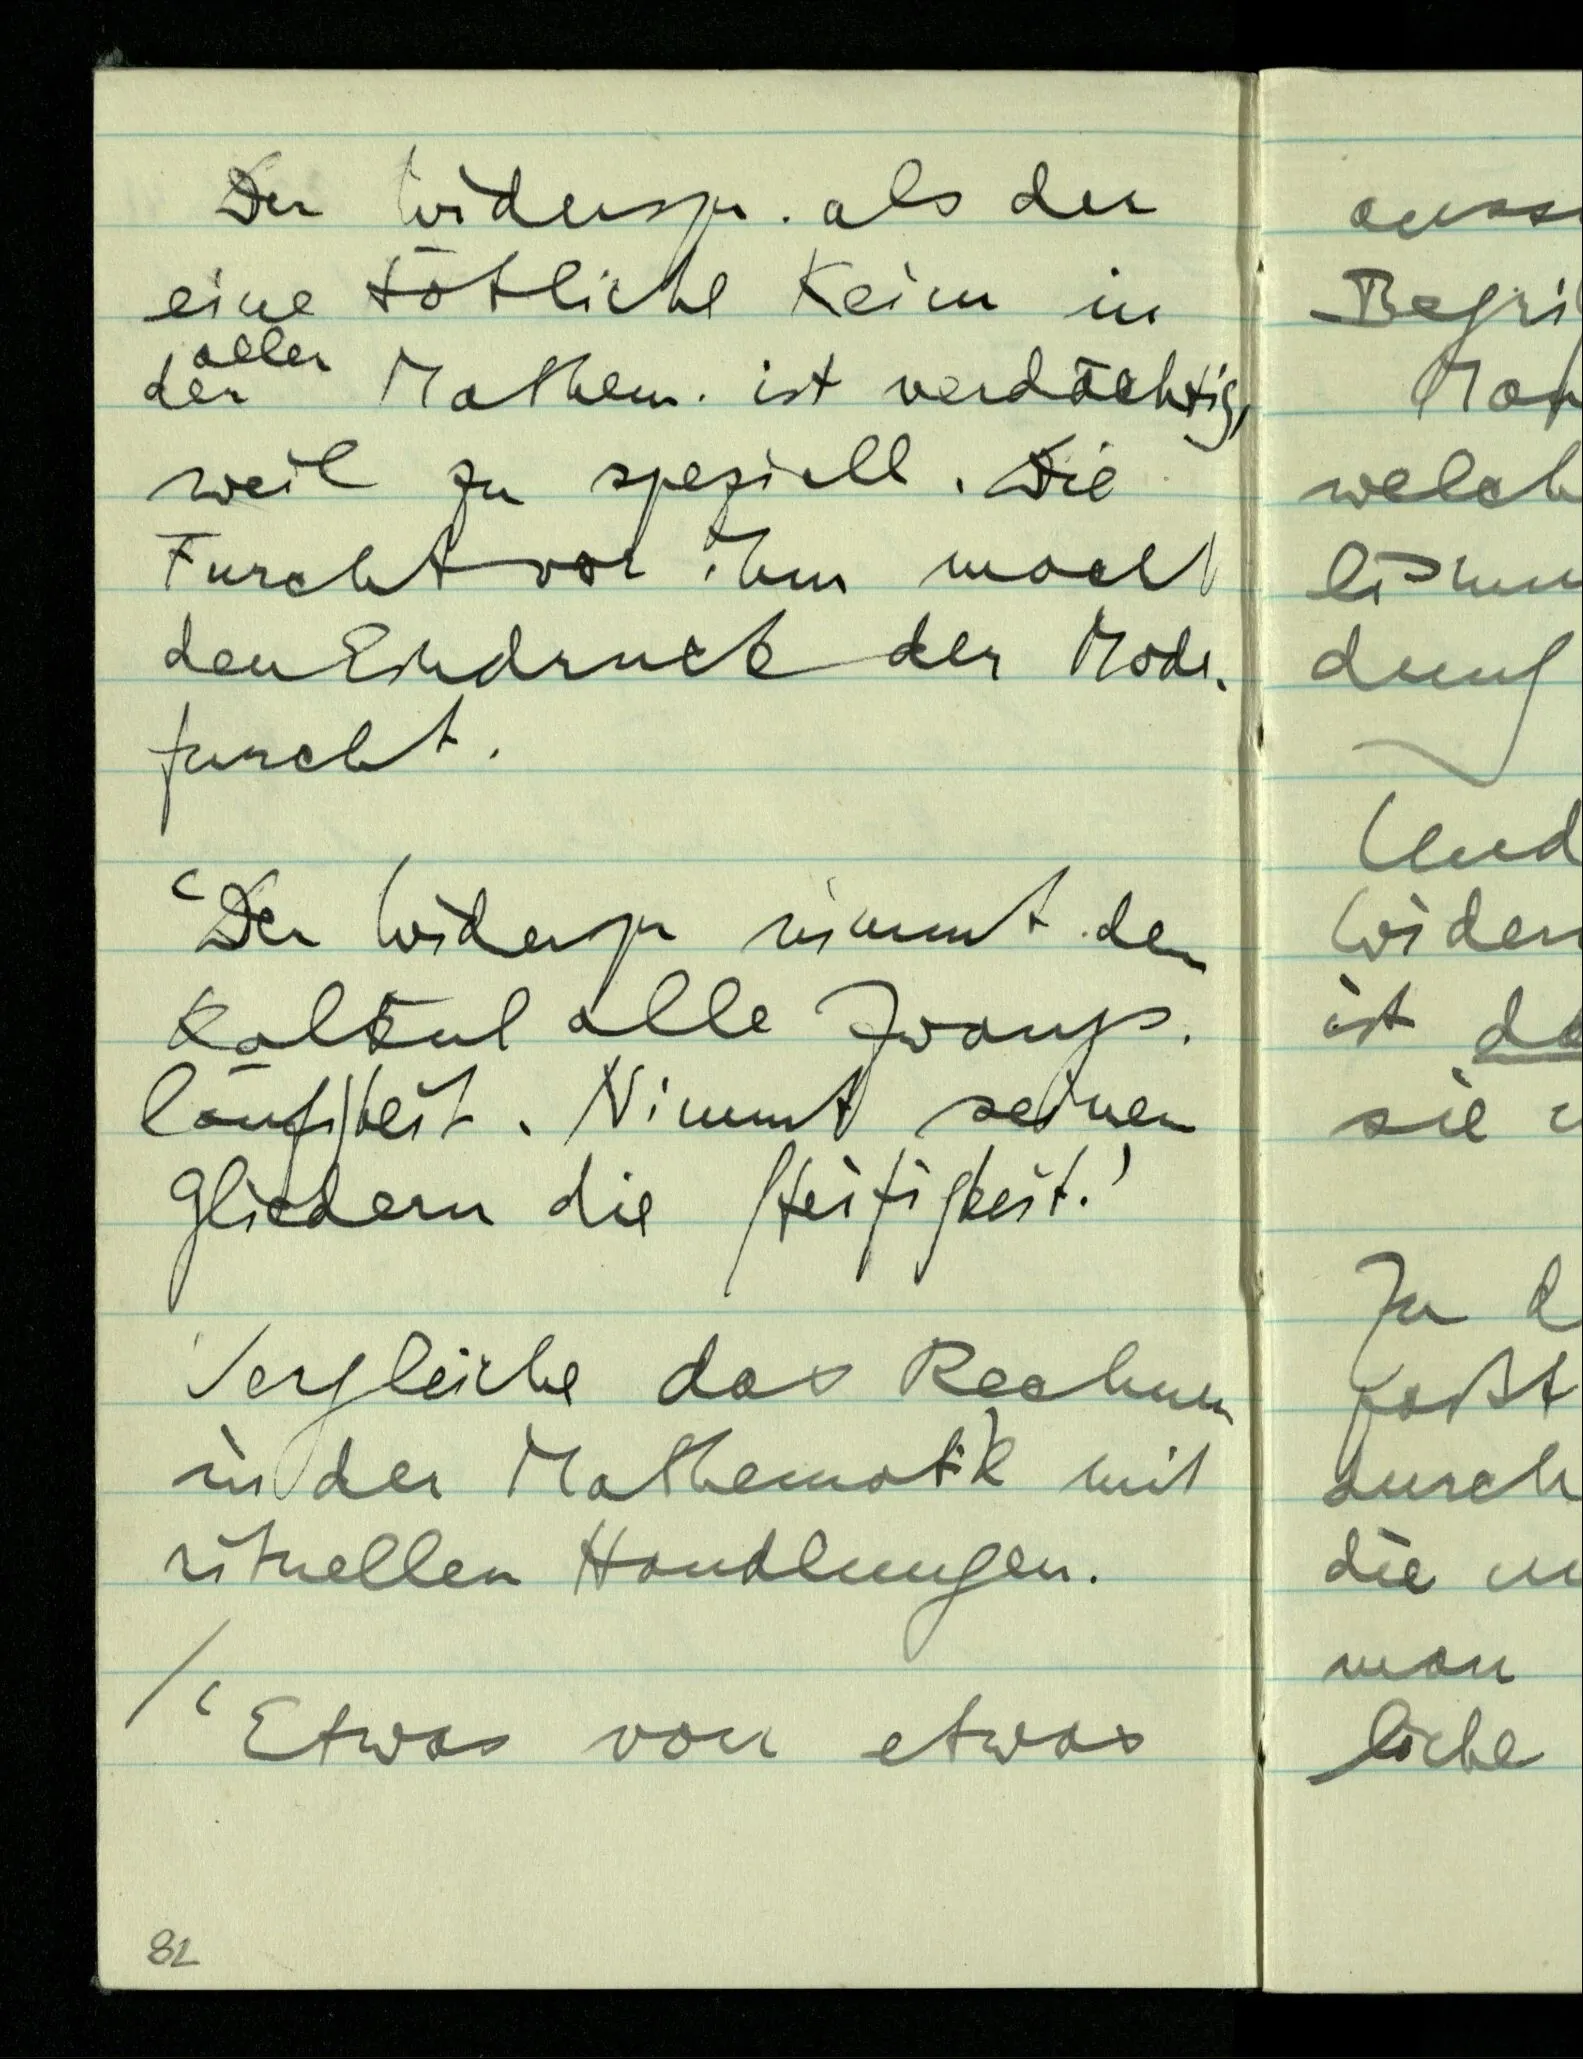 Der Widerspr. als der
eine tötliche Keim in
aller
der Mathem. ist verdächtig,
weil zu speziell. Die
Furcht vor ihm macht
den Eindruck der Mode-
furcht.
‘Der Widerspr nimmt dem
Kalkül alle Zwangs-
läufigkeit. Nimmt seinen
Gliedern die Steifigkeit.’
Vergleiche das Rechnen
in der Mathematik mit
rituellen Handlungen.
/ ‘Etwas von etwas
82
auss
Begri
Man
welch
dung
Und
Wider
ist da
sie
Zu d
faßt
durch
die
man
liche